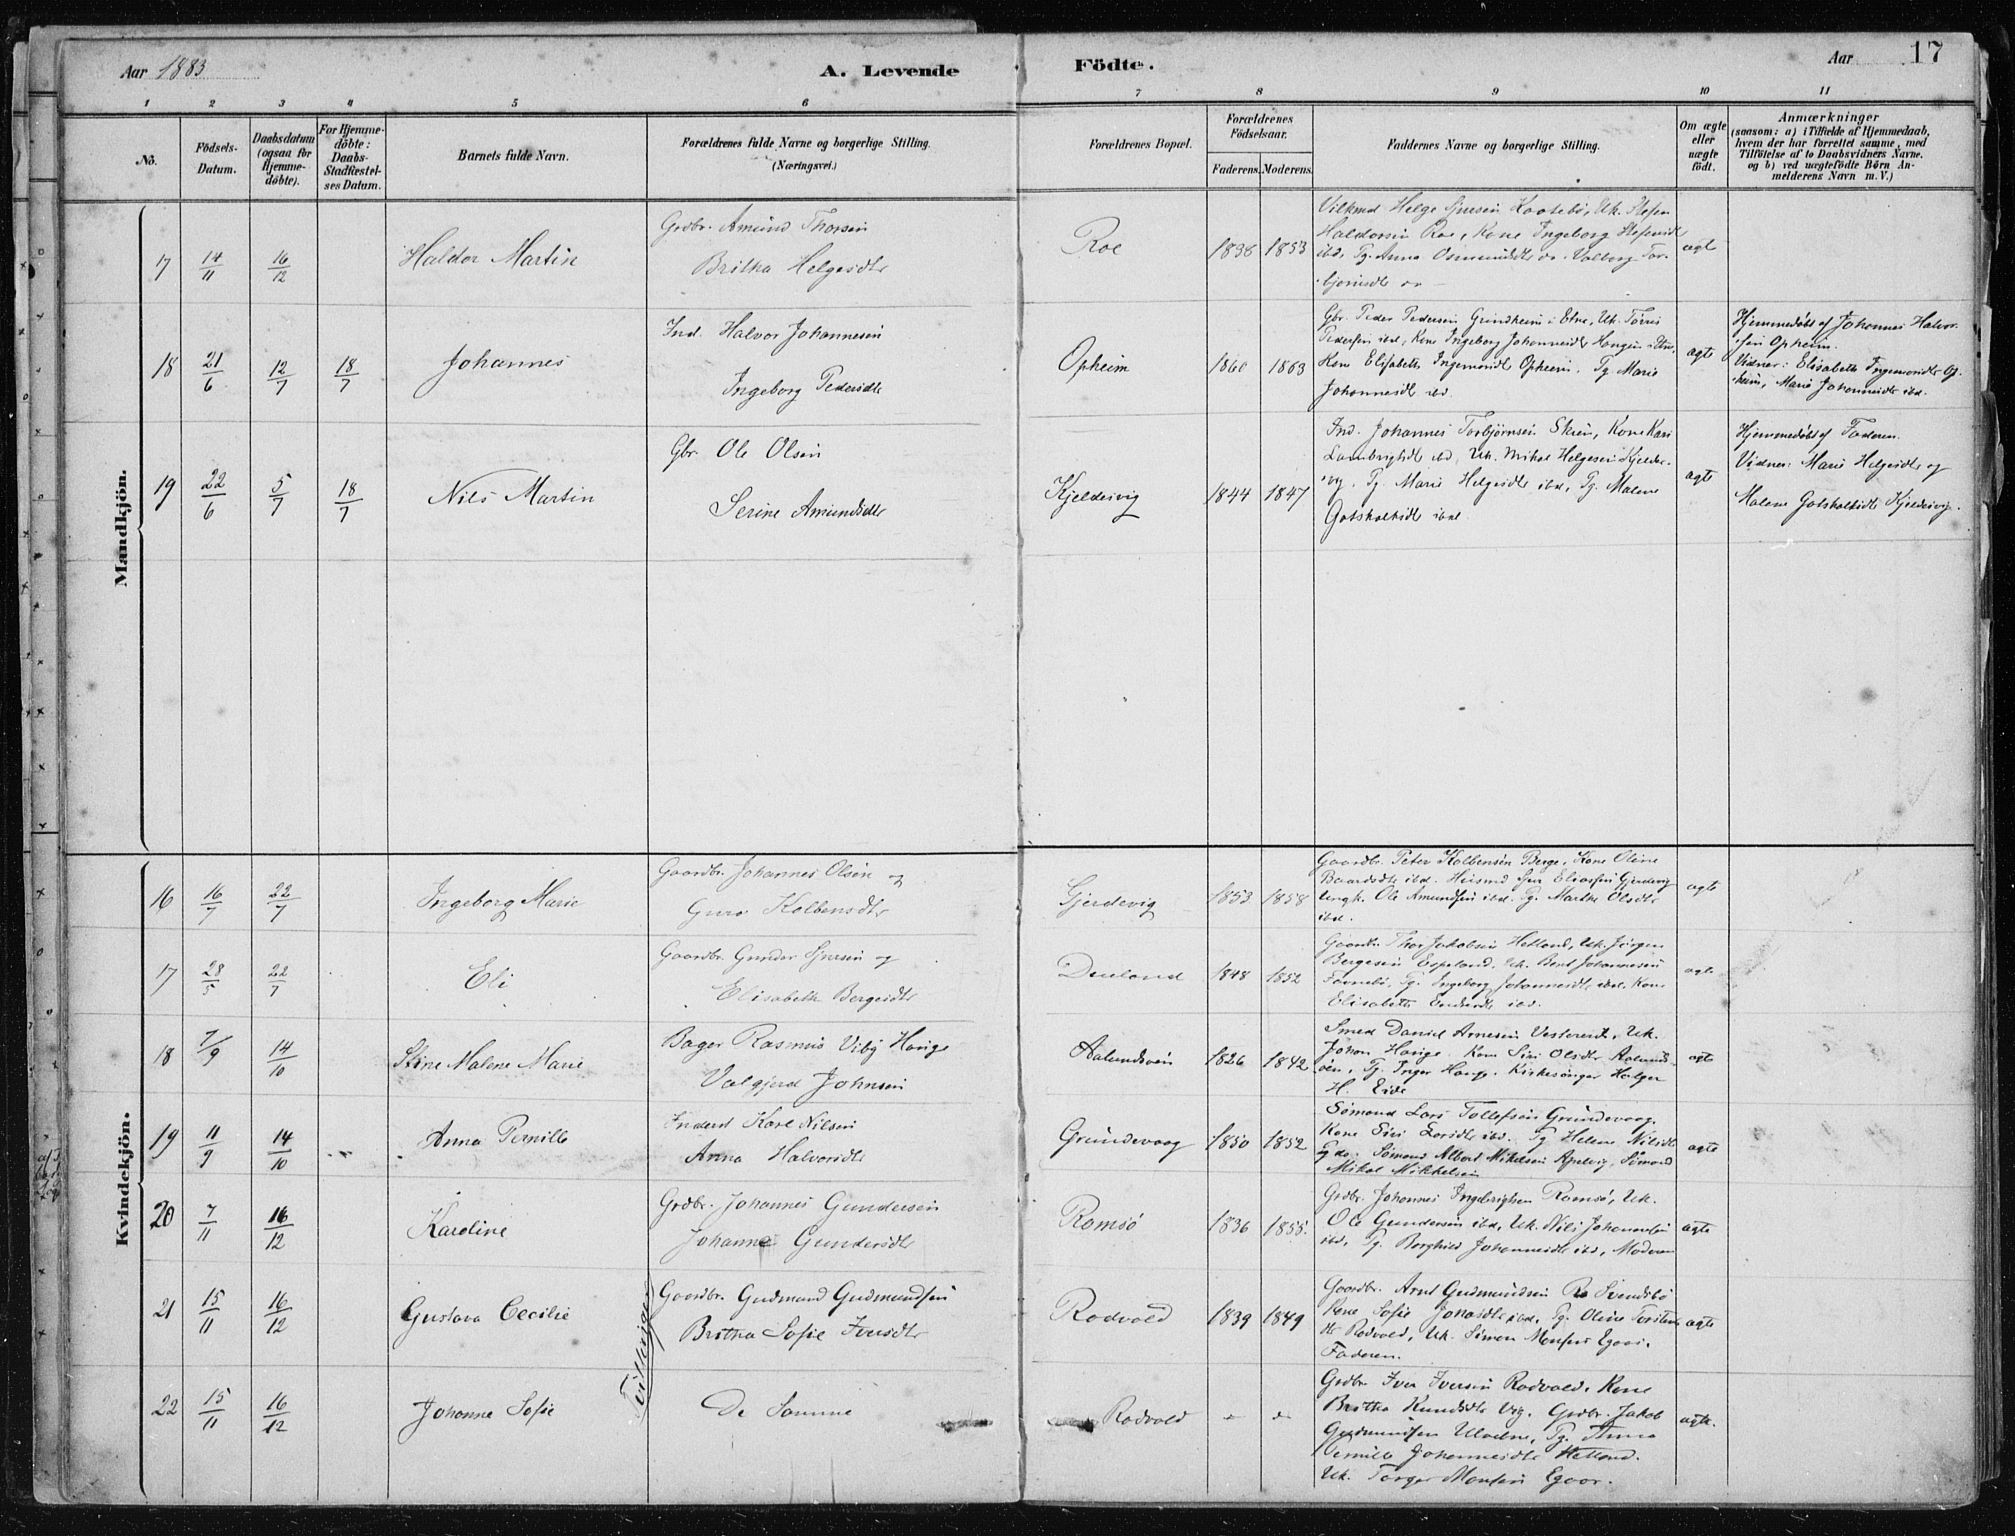 Aar 1883
A. Levende
Födte.
Aar
17
1 2 3 4 5 6 7 8 9 10 11
No.
Födsels-Datum.
Daabsdatum (ogsaa for Hjemme-döbte).
For Hjemme-döbte: Daabs-Stadfæstel-ses Datum.
Barnets fulde Navn.
Forældrenes fulde Navne og borgerlige Stilling. (Næringsvei.)
Forældrenes Bopæl.
Forældrenes Födselsaar.
Faderens. Moderens.
Faddernes Navne og borgerlige Stilling.
Om ægte eller uægte födt.
Anmærkninger
(saasom: a) i Tilfælde af Hjemmedaab,
hvem der har forrettet samme, med
Tilföielse af to Daabsvidners Navne.
og b) ved uægtefödte Börn An-
melderens Navn m. V.)
Mandkjön.
17 14/11 16/12 Haldor Martin
Grdbr. Amund Thorsen
Britha Helgesdtr
Roe 1836 1853
Vilkmd Helge Sjursen Kaatebö, Uk. Stefen
Haldorsen Roe, Kone Ingeborg Stefensdt
ibd, Pg. Anna Osmundsdtr Valborg Tor-
bjørnsdtr
ægt
18 21/6 12/7 18/7 Johannes
Ind. Halvor Johannesen
Ingeborg Pedersdtr
Opheim 1860 1863
Gbr. Peder Pedersen Grindheim i Etne, Uk. Torris
Pedersen ibd, Kone Ingeborg Johannesdt Haugen i Etne,
Kone Elisabeth Ingemoridt Opheim, Pg Marie
Johannesdt ibd.
ægte
Hjemmedøbt af Johannes Halvor-
sen Opheim.
Vidner: Elisabeth Ingemoridtr Op-
heim, Marie Johannesdtr ibd.
19 22/6 5/7 18/7 Nils Martin
Gbr Ole Olsen
Serine Amundsdtr
Kjeldevig 1844 1847
Ind. Johannes Torbjørnsen Skeie, Kone Kari
Lambrigtdt ibd, Uk. Mikal Helgesen Kjelde-
vig, Pg. Marie Helgesdtr ibd, Pg. Malene
Gotskalksdt ibd.
ægte
Hjemmedøbt af Faderen.
Vidner: Marie Helgesdtr og
Malene Gotskalksdtr Kjeldevig.
Kvindekjön.
16 16/7 22/7 Ingeborg Marie
Gaardbr. Johannes Olsen og
Guro Kolbensdtr
Gjerdevig 1853 1858
Gaardbr. Peter Kolbensen Berge, Kone Oline
Baardsdtr ibd. Husmd Sjur Eliassen Gjerdevig
Ungk. Ole Amundsen ibd. Pg. Marthe Olsdtr
ibd.
ægte
17 28/5 22/7 Eli
Gaardbr. Gunder Sjursen og
Elisabeth Bergesdtr
Dueland 1848 1852
Gaardbr. Thor Jakobsen Hetland, Uk. Jørgen
Bergesen Espeland, Uk. Bent Johannesen
Tornebö, Pg. Ingeborg Johannesdt ibd, Kone
Elisabeth ibd.
ægte
18 7/9 14/10 Stine Malene Marie
Bager Rasmus Viby Hauge
Valgjerd Johnsen
Aalundsøen 1826 1842
Smed Daniel Arnesen Uk.
Johan Hauge. Kone Siri Olsdtr Aalunds-
øen, Pg. Inger Hauge. Kirkesanger Holger
H. Eide
ægte
19 11/9 14/10 Anna Pernille
Inderst Karl Nilsen
Anna Halvorsdtr
Grundevaag 1850 1852
Sømand Lars Tollefsen Grundevaag,
Kone Siri Larsdtr ibd. Pg Helene Nilsdtr
Sømand Albert Mikelsen Apelvig, Sømand
Mikal Mikkelsen
ægte
20 7/11 16/12 Karoline
Grdbr. Johannes Gundersen
Johanne Gundersdtr
Romsø 1836 1855.
Grdbr. Johannes Ingebrigtsen Romsø, Uk.
Ole Gundersen ibd, Uk. Nils Johannesen
ibd, Pg. Borghild Johannesdt ibd, Moderen
ægte
21 15/11 16/12 Gustava Cecilie
Tvillinger
Gaardbr. Gudmund Gudmundsen
Britha Sofie Iversdtr
Rodvold 1839 1849
Gaardbr. Arnt Gudmundsen Svendsbö
Kone Sofie Jonasdtr ibd, Pg. Oline Torstens-
dtr Rodvold, Uk. Simon Monsen Egaas.
Faderen.
ægte
22 15/11 16/12 Johanne Sofie
De Samme
Rodvold
Grdbr. Iver Iversen Rodvold, Kone
Britha Knudsdtr Vig, Grdbr. Jakob
Gudmundsen Ulvelne, Pg. Anna
Pernille Johannesdtr Hetland.
Uk. Torger Monsen Egaas.
ægte.